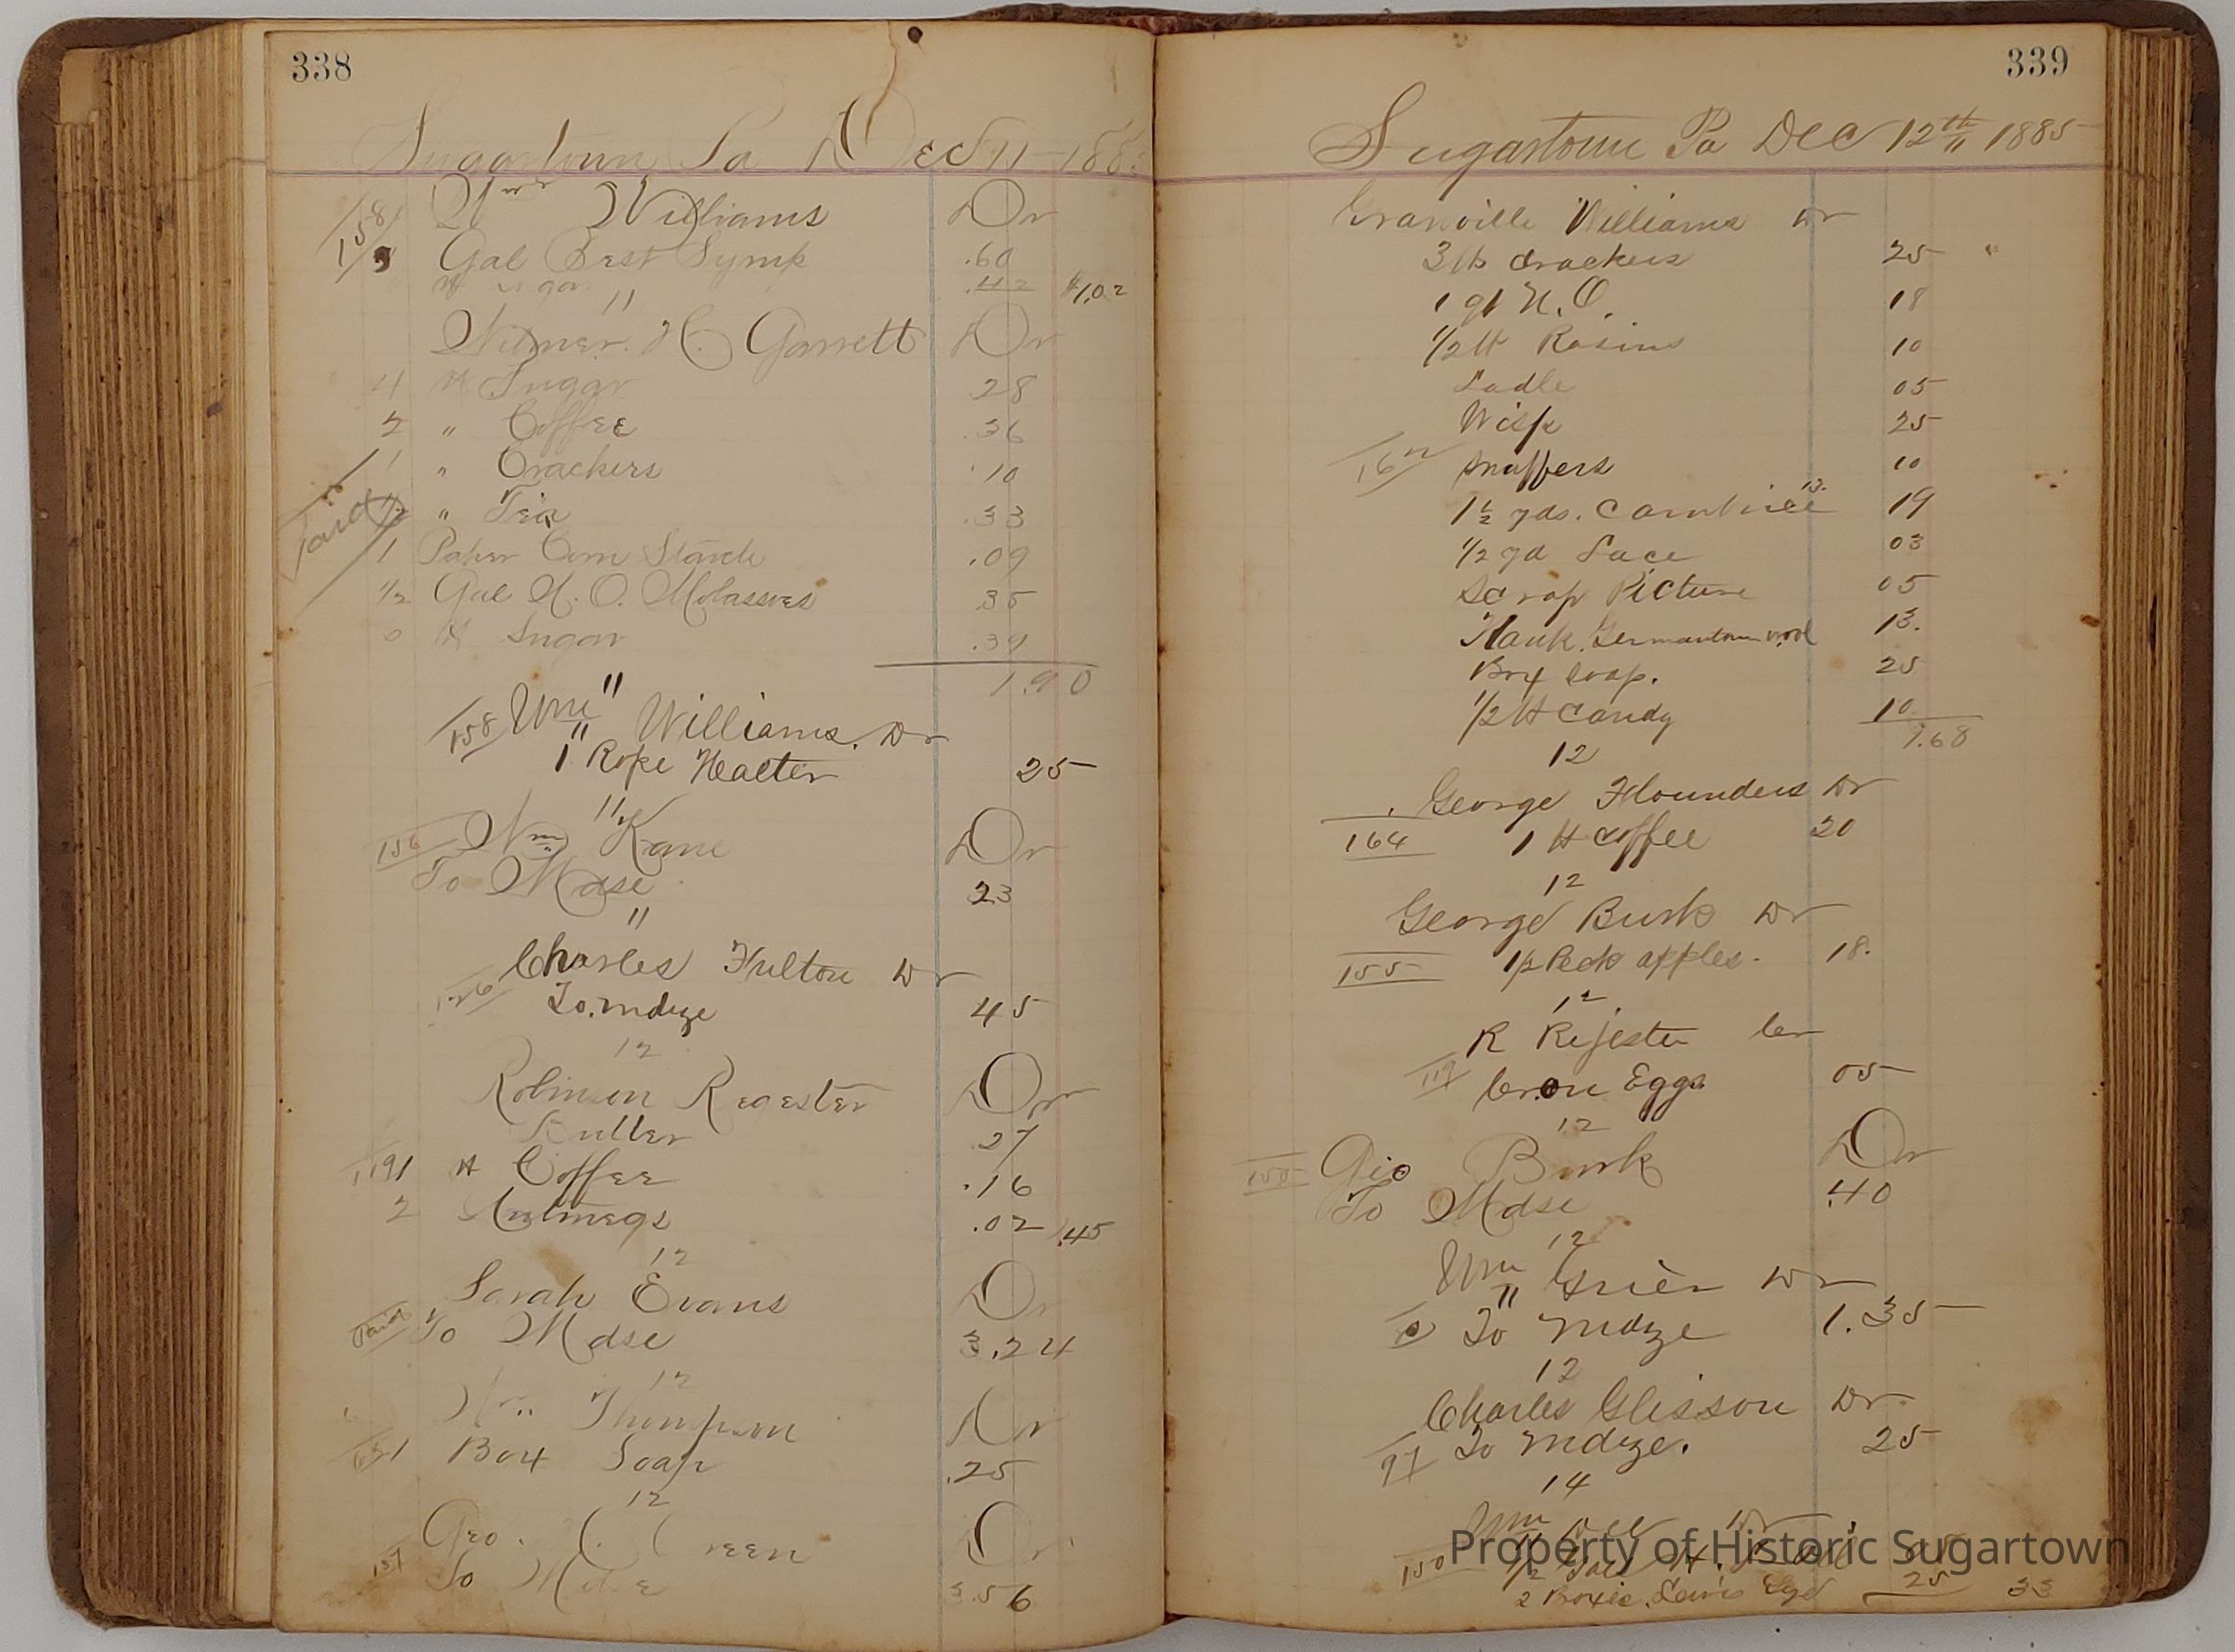 338
Sugartown Pa Dec 11 188
158 Wm Williams Dr
Gal Best Syrup .60
Sugar .42 $1.02
11
Wilmer H. Garrett Dr
4 lb Sugar .28
2 " Coffee .36
1 " Crackers .10
Paid 1/2 " Tea .33
1 Paper Corn Starch .09
1/2 Gal N. O. Molasses .35
6 lb Sugar .39
1.90
11
158 Wm Williams. Dr
1 Rope Halter 25
11
156 Wm Kane Dr
To Mdse 23
11
126 Charles Fulton Dr
To. mdze 45
12
Robinson Regester Dr
Butter .27
119 1 lb Coffee .16
2 Nutmegs .02 .45
12
Sarah Evans Dr
Paid To Mdse 3.24
12
Wm Thompson Dr
1 Box Soap .25
12
Geo. C. Green Dr
157 To Mdse 3.56
339
Sugartown Pa Dec 12th 1885
Granville Williams Dr
3 lb crackers 25 "
1 qt N.O. 18
1/2 lb Rasins 10
Ladle 05
Wisp 25
16 snuffers 10
1 1/2 yds. Cambric 13. 19
1/2 yd Lace 03
Scrap Picture 05
Hank. Germantown wool 13.
Box soap. 25
1/2 lb Candy 10
1.68
12
George Flounders Dr
164 1 lb coffee 20
12
George Burk Dr
155 1/2 Peck apples. 18.
12
R Rejester Cr
119 Cr. on Eggs 05
12
155 Geo Burk Dr
To Mdse .40
12
Wm Grier Dr
To mdze 1.35
12
Charles Glisson Dr
97 To mdze. 25
14
Wm Dr
150 1/2
2 Boxes Lewis Lye 25 33
Property of Historic Sugartown